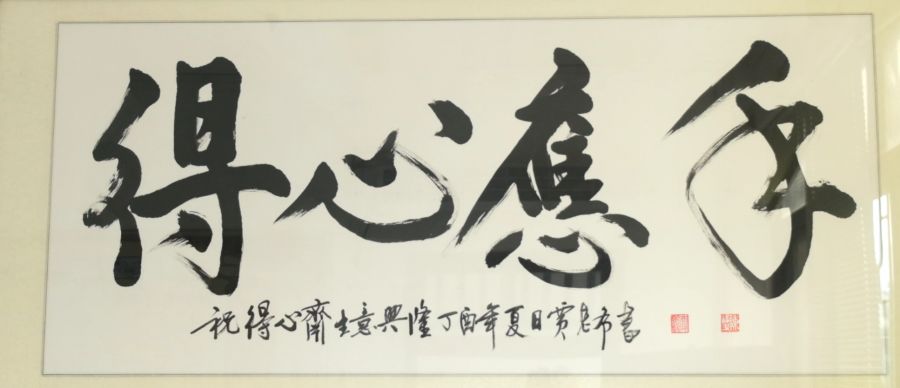 得心應手
祝得心齋生意興隆丁酉年夏日賈老布書